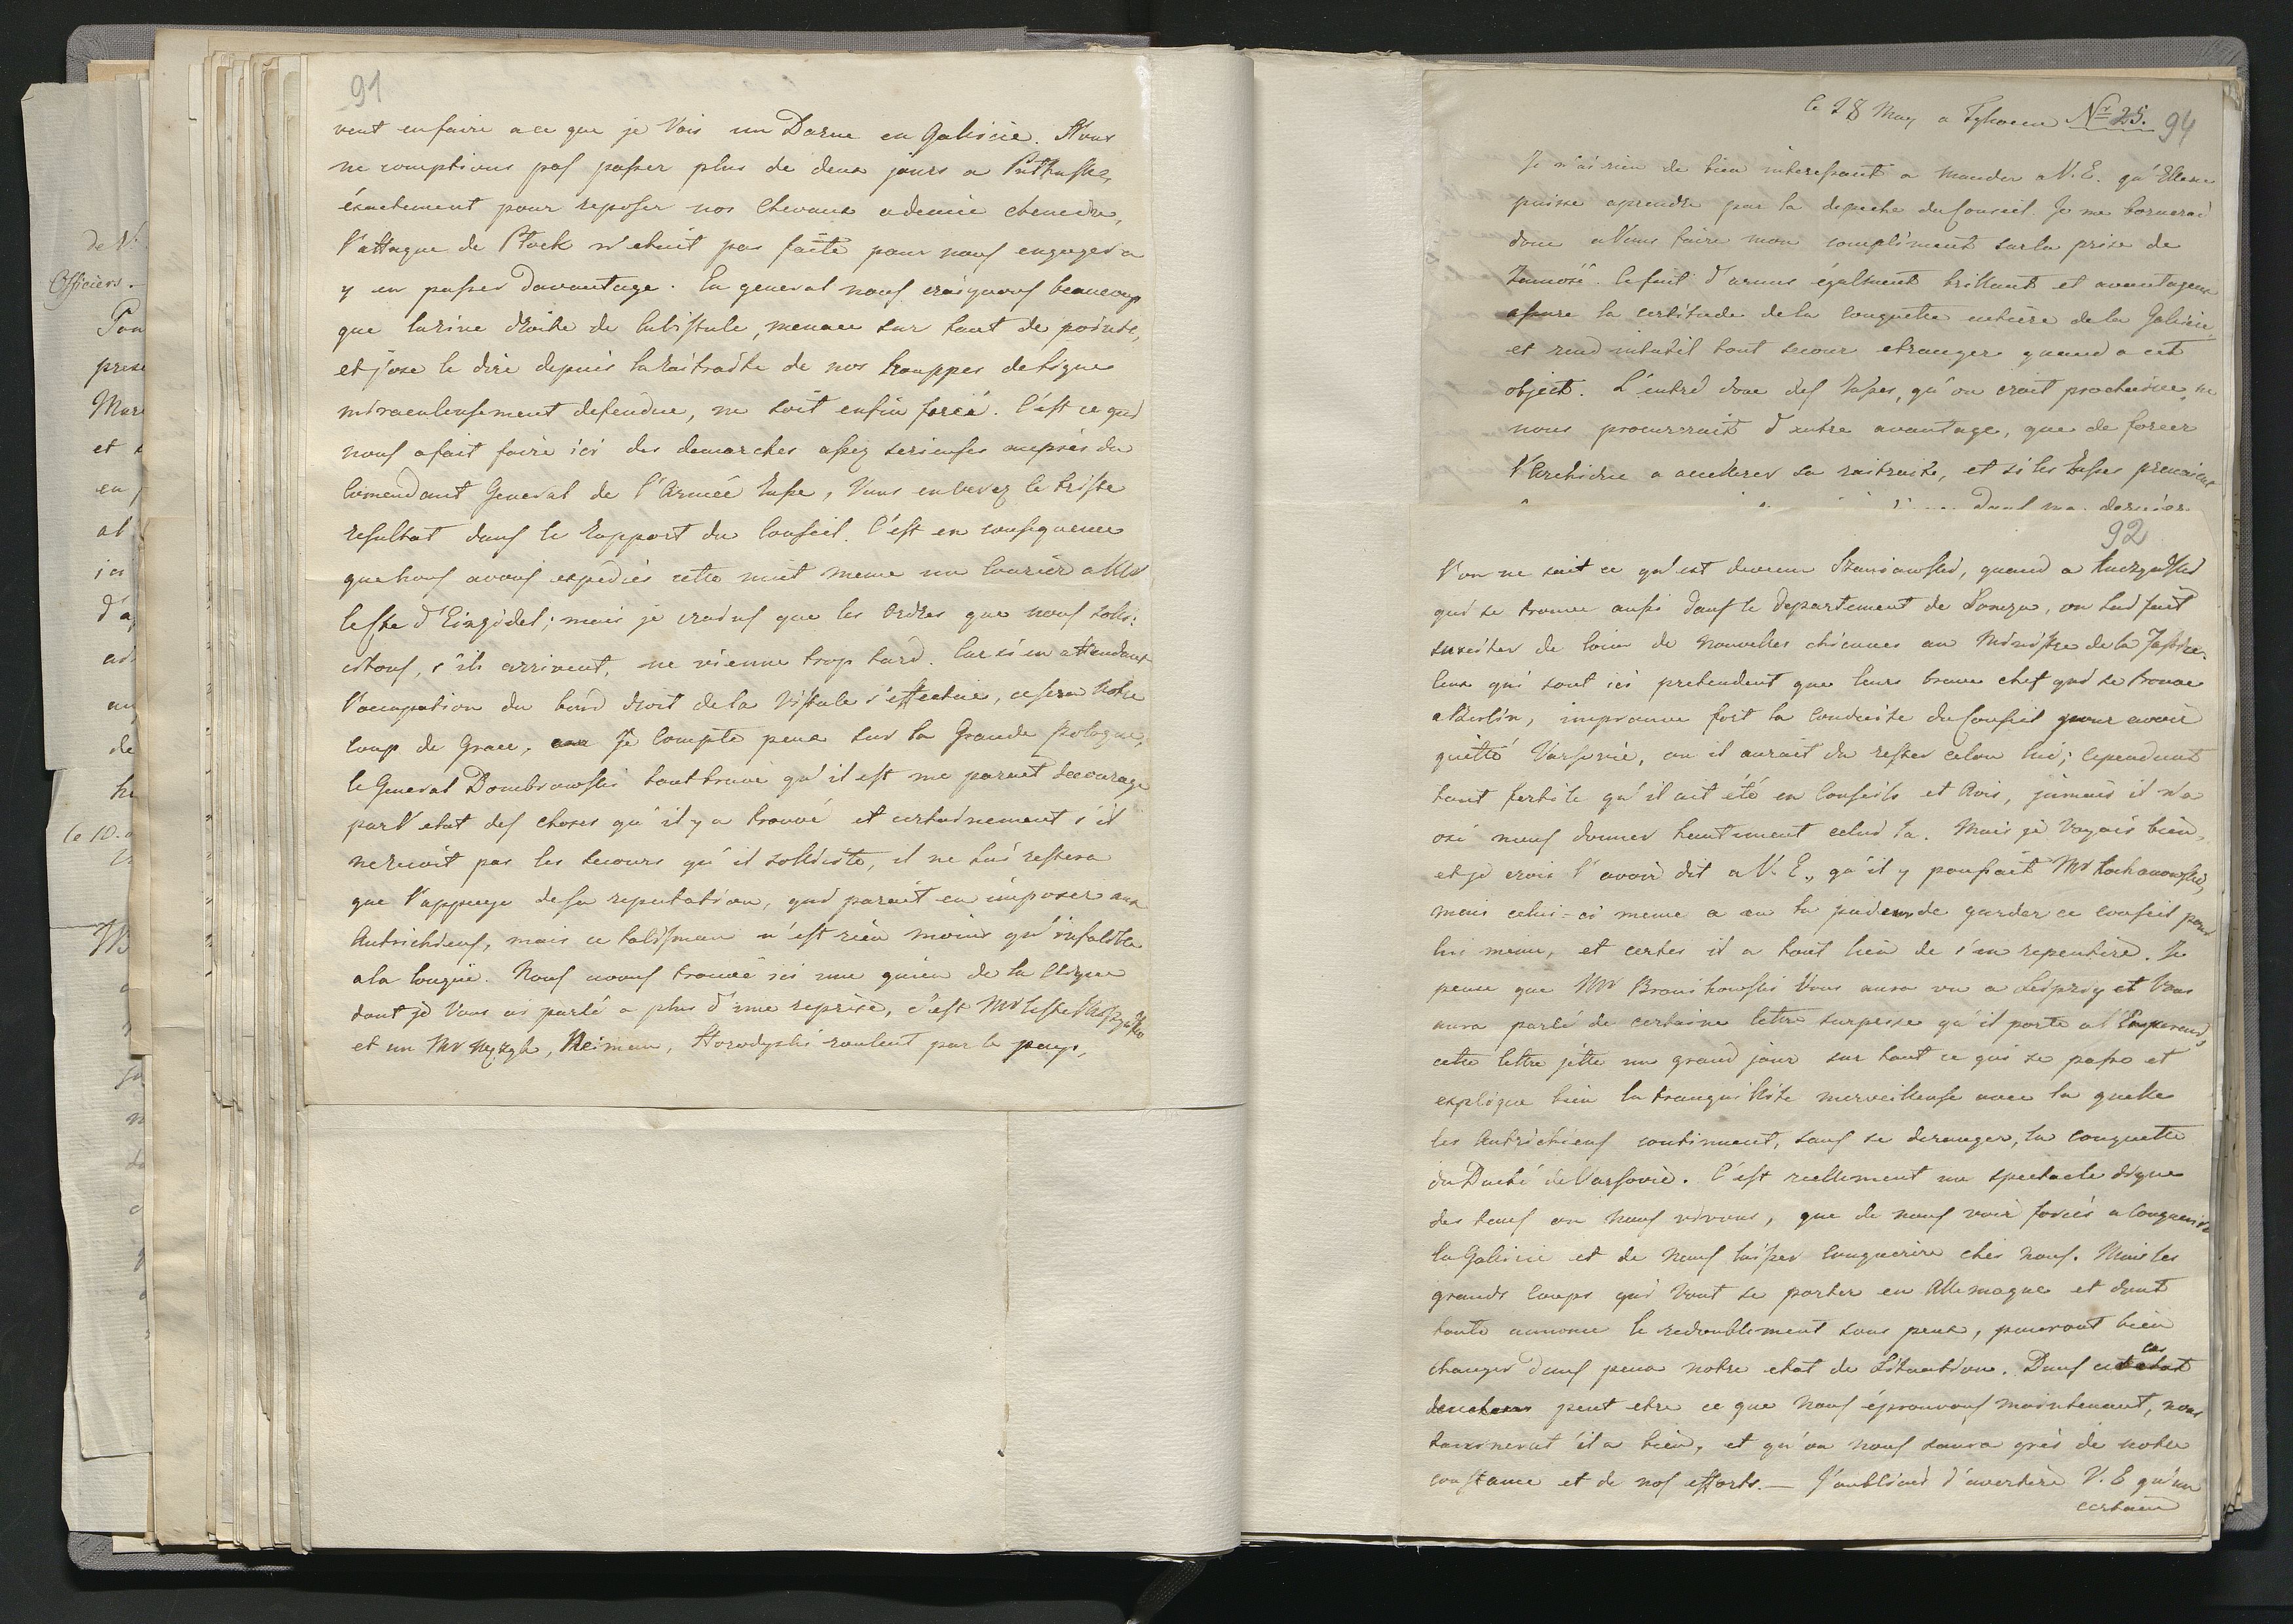 91
veut enfaire a ce que je Vois un Darne en Galicie. Nous
ne comptions pas passer plus de deux jours a Pultuske,
éxactement pour reposer nos Chevaux ademie
l'attaque de Plock n'etait pas faite pour nous engager a
y en passer Davantage. En general nous craignons beaucoup
que larive droite de laVistule, menacee sur tant de points,
et j'ose le dire depuis la raitraitte de nos trouppes de ligne
miraculeusement defendue, ne soit enfin forcé. C'est ce qui
nous afait faire ici des demarches assez serieuses auprès du
Comendant General de l'Armée Russe, Vous en verez le triste
resultat dans le Rapport du Conseil. C'est en consequence
que nous avons expediés cette nuit meme un Courier a Mr
leste d'Einsidel; mais je crains que les Ordres que nous solli:
citons, s'ils arrivent, ne vienne trop tard. Car si en attendant
l'occupation du bord droit de la Vistule s'effectue, ce sera Notre
coup de Grace, Je Compte peux sur la Grande Pologne,
le General Dombrowski tout brave qu'il est me parait decouragé
parl'etat des choses qu'il y a trouvé et certainement s'il
nerecoit pas les secours qu'il sollicite, il ne lui restera
que l'appuye desa reputation, qui parait en imposer aux
Autrichiens, mais ce talisman n'est rien moins qu'infalible
ala longue. Nous avons trouvé ici une queue de la Clique
dont je Vous ai parlé a plus d'une reprise, c'est Mr
et un Mr Neyman, Horodyski roulent par le pays,
le 28 May a Tykocin Nr 25. 94
Je n'ai rien de bien interessant a mander a V.E. qu'Elle ne
puisse aprendre par la depeche du Conseil. Je me bornerai
donc a Vous faire mon compliment sur la prise de
Zamosć. Ce fait d'armes également brillant et avantageux
assure la certitude de la Conquette entiere de la Galicie
et rend inutil tout secour etranger quand a cet
object. L'entré donc des Russes, qu'on croit prochaine, ne
nous procurerait d'autre avantage, que de forcer
l'Archiduc a accelerer sa raitraite, et si les Russes prenaient
dans ma derniere
92
l'on ne sait ce qu'est devenu Szaniawski, quand a
qui se trouve aussi dans le departement de Lomza, on lui fait
susciter de loin de nouvelles chicanes au Ministre de la Justice.
Ceux qui sont ici pretendent que leurs brave chef qui se trouve
a Berlin, improuve fort la Conduite du Conseil pour avoir
quitté Varsovie, ou il aurait du rester celon lui; cependant
tout fertile qu'il ait été en Conseils et Avis, jamais il n'a
osé nous donner hautement celui la. Mais je Voyais bien,
et je crois l'avoir dit a V.E., qu'il y poussait Mr Kochanowski,
mais celui-ci meme a eu la pudeur de garder ce conseil pour
lui meme, et certes il a tout lieu de s'en repentire. Je
pense que Mr Bronikowski Vous aura vu a Leipzig et Vous
aura parlé de certaine lettre surprise qu'il porte a l'Empereur,
cette lettre jette un grand jour sur tout ce qui se passe et
explique bien la tranquillité merveilleuse avec la quelle
les Autrichiens continuent, sans se deranger, la conquette
du Duché de Varsovie. C'est reellement un spectacle digne
des tems ou nous vivons, que de nous voir forcés a Conquerire
la Galicie et de nous laisser Conquerire chés nous. Mais les
grands Coups qui Vont se porter en Allemagne et dont
toute annonce le redoublement sous peux, pouront bien
changer dans peux notre etat de Situation. Dans ce cas
peut etre ce que nous éprouvons maintenant, nous
tournerat 'il a bien, et qu'on nous saura grés de notre
constance et de nos efforts. — J'oubliais d'avertire V.E qu'un
certain